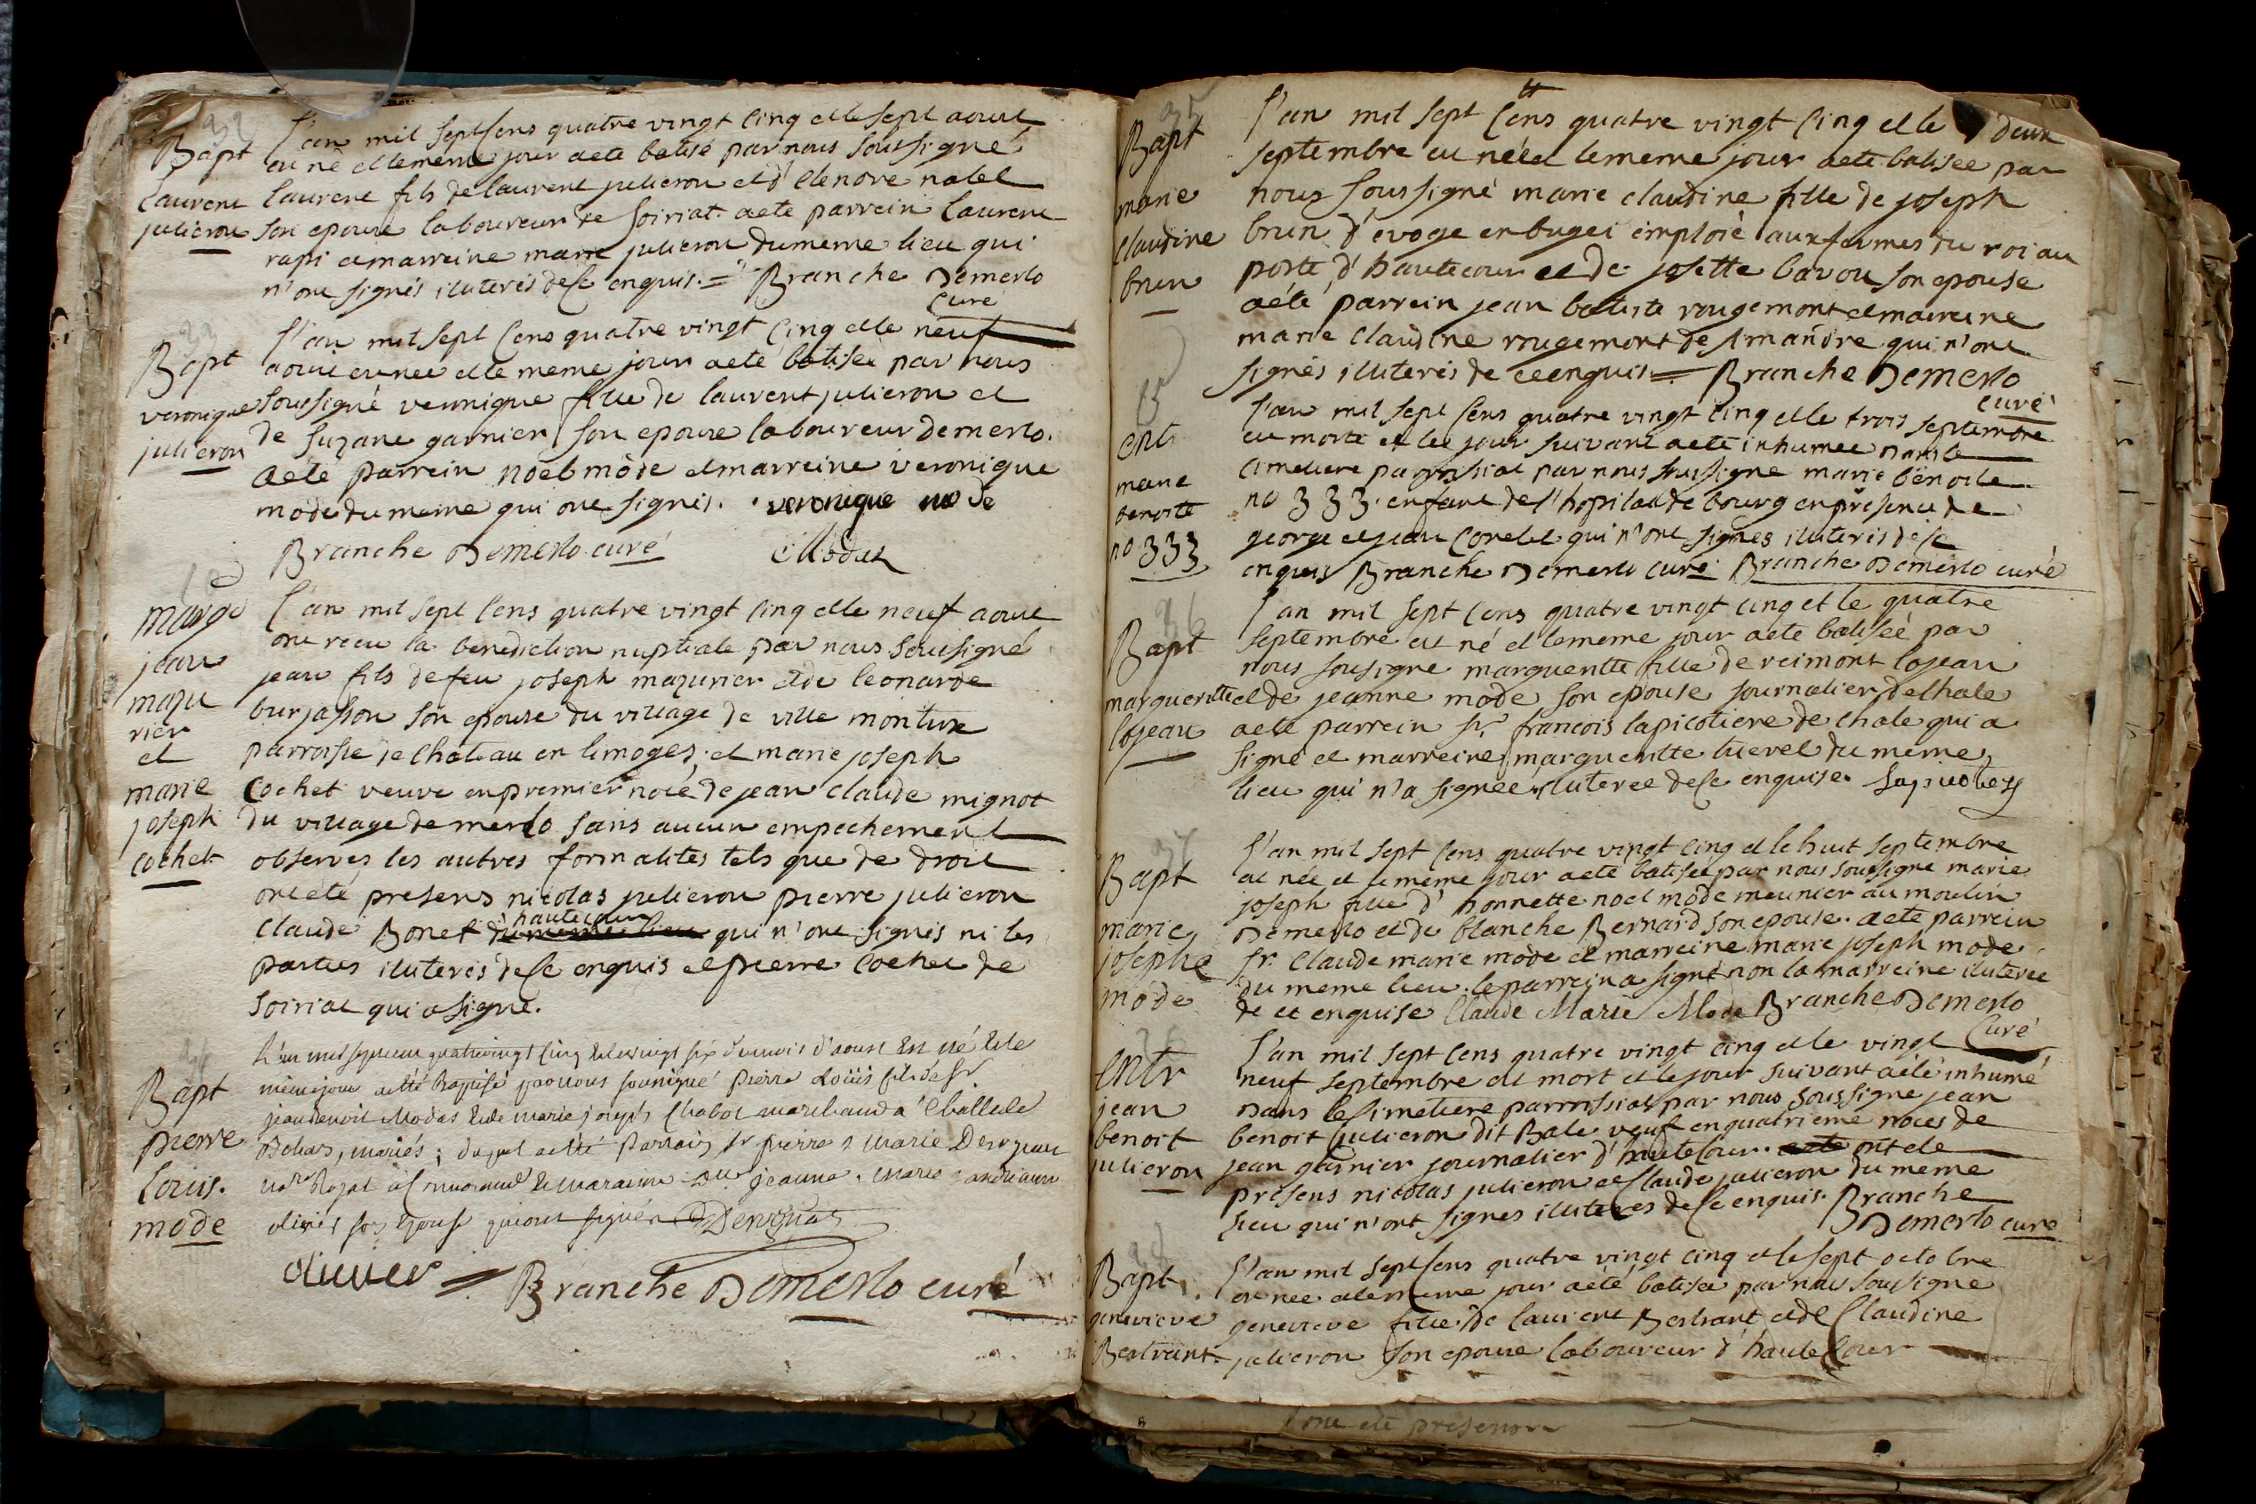 Bapt
laurent
julieron
L'an mil sept cens quatre vingt cinq et le sept aout
est né et le meme jour a eté batisé par nous soussigné
laurent fils de laurent julieron et d'elenore
son epouse laboureur de soiriat. a eté parrein laurent
et marreine marie julieron du meme lieu qui
n'ont signés iliterés de ce enquis. = Branche Demerlo
curé
Bapt
veronique
julieron
L'an mil sept cens quatre vingt cinq et le neuf
aout est née et le meme jour a eté batisée par nous
soussigné veronique fille de laurent julieron et
de suzane garnier son epouse laboureur demerlo.
a eté parrein noel mode et marreine veronique
mode du meme qui ont signés. veronique mode
Branche Demerlo curé
Mariage
jean
mazu
rier
et
marie
joseph
cochet
L'an mil sept cens quatre vingt cinq et le neuf aout
ont recu la benediction nuptiale par nous soussigné
jean fils de feu joseph mazurier et de leonarde
burjasson son epouse du village de ville
parroisse de chateau en limoges, et marie joseph
cochet veuve en premier noce de jean claude mignot
du village de merlo sans aucun empechement
observés les autres formalités tels que de droit
ont eté presens nicolas julieron pierre julieron
claude Bonet hautecour qui n'ont signés ni les
parties iliterés de ce enquis et pierre cochet de
soiriat qui a signé.
Bapt
pierre
louis.
mode
L'an mil sept cent quatrevingt cinq et le vingt six du mois d'aoust est né et le
même jour a été Baptisé par nous soussigné pierre Loüis fils de Sr
jean benoit Modas et de marie joseph Chabot marchand a
mariés; duquel a été Parrain Sr pierre marie
royal et maraine Dlle jeanne marie
olivier son Epouse qui ont signés
olivier = Branche Demerlo curé
Bapt
marie
claudine
brun
L'an mil sept cens quatre vingt cinq et le deux
septembre est née et le meme jour a eté batisée par
nous soussigné marie claudine fille de joseph
brun d'evoge en bugei emploié aux fermes du roi au
poste d'hautecour et de josette son epouse
a eté parrein jean batiste rougemont et marreine
marie claudine rougemont de simandre qui n'ont
signés iliterés de ce enquis = Branche Demerlo
curé
Entr
marie
benoite
no 333
L'an mil sept cens quatre vingt cinq et le trois septembre
est morte et le jour suivant a eté inhumée dans le
cimetiere parroissial par nous soussigné marie benoite
no 333. enfant de l'hopital de bourg en presence de
george et jean qui n'ont signés iliterés de ce
enquis Branche Demerlo curé Branche Demerlo curé
Bapt
margueritte
lojean
L'an mil sept cens quatre vingt cinq et le quatre
septembre est né et le meme jour a eté batisée par
nous sousigné margueritte fille de reimont lojean
et de jeanne mode son epouse journalier de
a eté parrein Sr francois lapicotiere de chale qui a
signé et marreine marguerritte du meme
lieu qui n'a signée iliterée de ce enquise.
Bapt
marie
josephe
mode
L'an mil sept cens quatre vingt cinq et le huit septembre
est née et le meme jour a eté batisée par nous soussigné marie
joseph fille d'honnette noel mode meunier au moulin
Demerlo et de blanche Bernard son epouse. a eté parrein
Sr. claude marie mode et marreine marie joseph mode
du meme lieu. le parrein a signé non la marreine iliterée
de ce enquise Claude Marie Mode Branche Demerlo
curé
Entr
jean
benoit
julieron
L'an mil sept cens quatre vingt cinq et le vingt
neuf septembre est mort et le jour suivant a eté inhumé
dans le cimetiere parroissial par nous soussigné jean
benoit julieron dit Bale veuf en quatrieme noces de
jean garnier journalier d'hautecour. ont eté
presens nicolas julieron et claude julieron du meme
lieu qui n'ont signés iliterés de ce enquis. Branche
Demerlo curé
Bapt.
genevieve
Bertrant.
L'an mil sept cens quatre vingt cinq et le sept octobre
est née et le meme jour a eté batisée par nous sousigné
genevieve fille de laurent Bertrant et de Claudine
julieron son epouse laboureur d'hautecour
ont eté presens